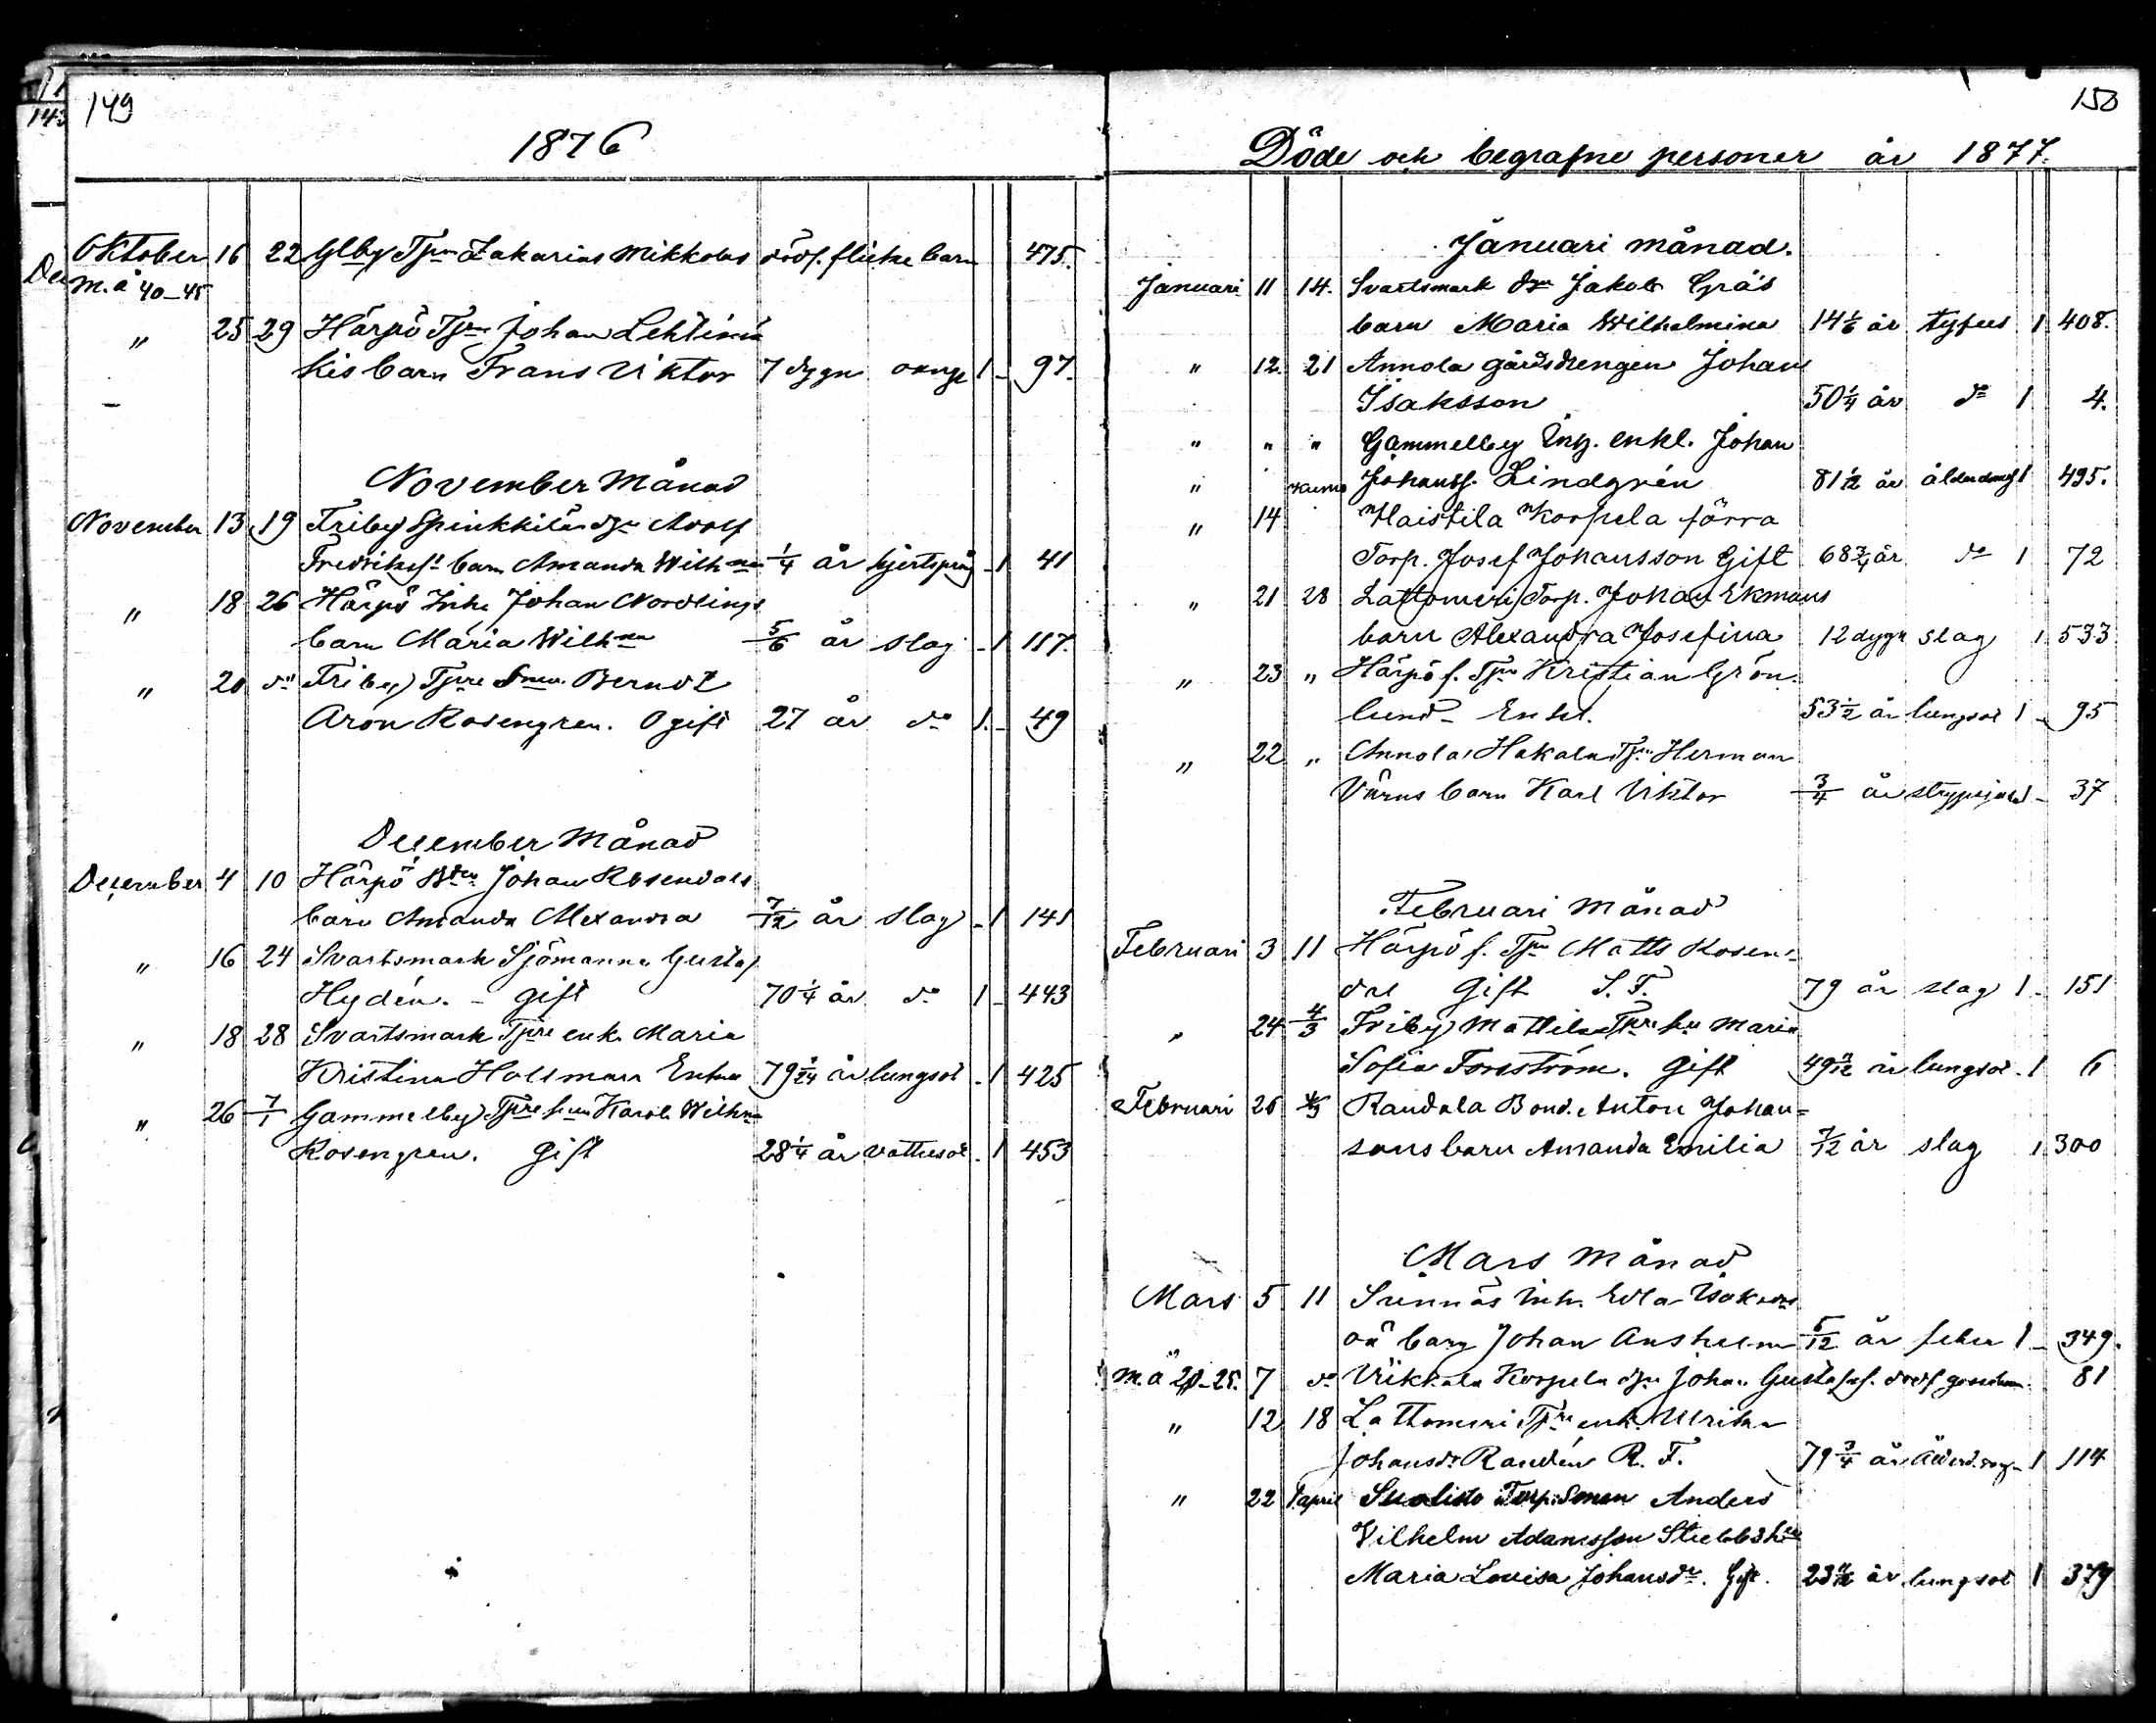 149
1876
Oktober 16 22 Glby Tpn Zakarias Mikkolas dödf. flicke barn 475.
M. å 40-45
" 25 29 Härpö Tpn Johan Lehtinis
kis barn Frans Viktor 7 dygn okänd 1 - 97.
November Månad
November 13 19 Friby Spinkkilä dgn Adolf
Fredrikss barn Amanda Wilhna 1/4 år hjertspräng - 1 41
" 18 26 Härpö Inh. Johan Nordlings
barn Maria Wilhna 5/6 år slag - 1 117.
" 20 do Friby Tpre Smen Berndt
Aron Rosengren. Ogift 27 år do 1. - 49
December Månad
December 4 10 Härpö Bden Johan Rosendals
barn Amanda Alexandra 7/12 år slag - 1 141
" 16 24 Svartsmark Sjömannen Gustaf
Hydén. - gift 70 1/4 år do 1 - 443
" 18 28 Svartsmark Tpre enk. Maria
Kristina Hollman Enka lungsot - 1 425
" 26 7/1 Gammelby Tpre hun Karol. Wilhna
Rosengren. Gift 28 1/4 år vattusot - 1 453
150
Döde och begrafne personer år 1877.
Januari månad.
Januari 11 14. Svartsmark dgn Jakob Gräs
barn Maria Wilhelmina 14 1/6 år tyfus 1 408.
" 12. 21 Annola gårdsdrengen Johan
Isaksson 50 1/4 år do 1 4.
" " " Gammelby Inh. enkl. Johan
" Kumo Johanss. Lindgrén 81 1/12 år ålderdomsf 1 495.
" 14 Haistila Korpela förra
Torp. Josef Johansson Gift 68 3/4 år do 1 72
" 21 28 Lattomeri Torp. Johan Ekmans
barn Alexandra Josefina 12 dygn slag 1 533
" 23 " Härpö f. Tpn Kristian Grön-
lund - Enkl. 53 1/2 år lungsot 1 - 95
" 22 " Annola Hakala Tpn Herman
Värns barn Karl Viktor 3/4 år strypsjuka 1 - 37
Februari Månad
Februari 3 11 Härpö f. Tpn Matts Rosen-
dal Gift S. F. 79 år slag 1 - 151
" 24 4/3 Friby Mattila Tpre hu Maria
Sofia Forsström. Gift 49 år lungsot. 1 6
Februari 26 4/3 Randala Bond. Anton Johan-
sons barn Amanda Emilia 7/12 år slag 1 300
Mars Månad
Mars 5 11 Sunnäs Inh. Edla Isaksdrs
oä barn Johan Anshelm 5/12 år feber 1 - 349.
M. å 20-25. 7 do Vikkala Korpela dgn Johan Gustafss. dödf gossebarn 81
" 12 18 Lattomeri Tpre enk. Ulrika
Johansdr Randén R. F. 79 3/4 år Ålderdomsf - 1 114
" 22 1 april Suolisto Torp. Smen Anders
Vilhelm Adamsson Stubbs hu
Maria Lovisa Johansdr. Gift. lungsot 1 379